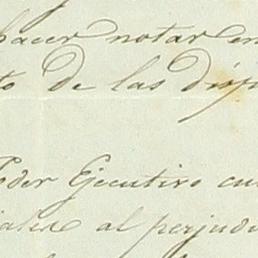 hacer notar en
to de las disp
Poder Ejecutivo cu
iales al perjudi